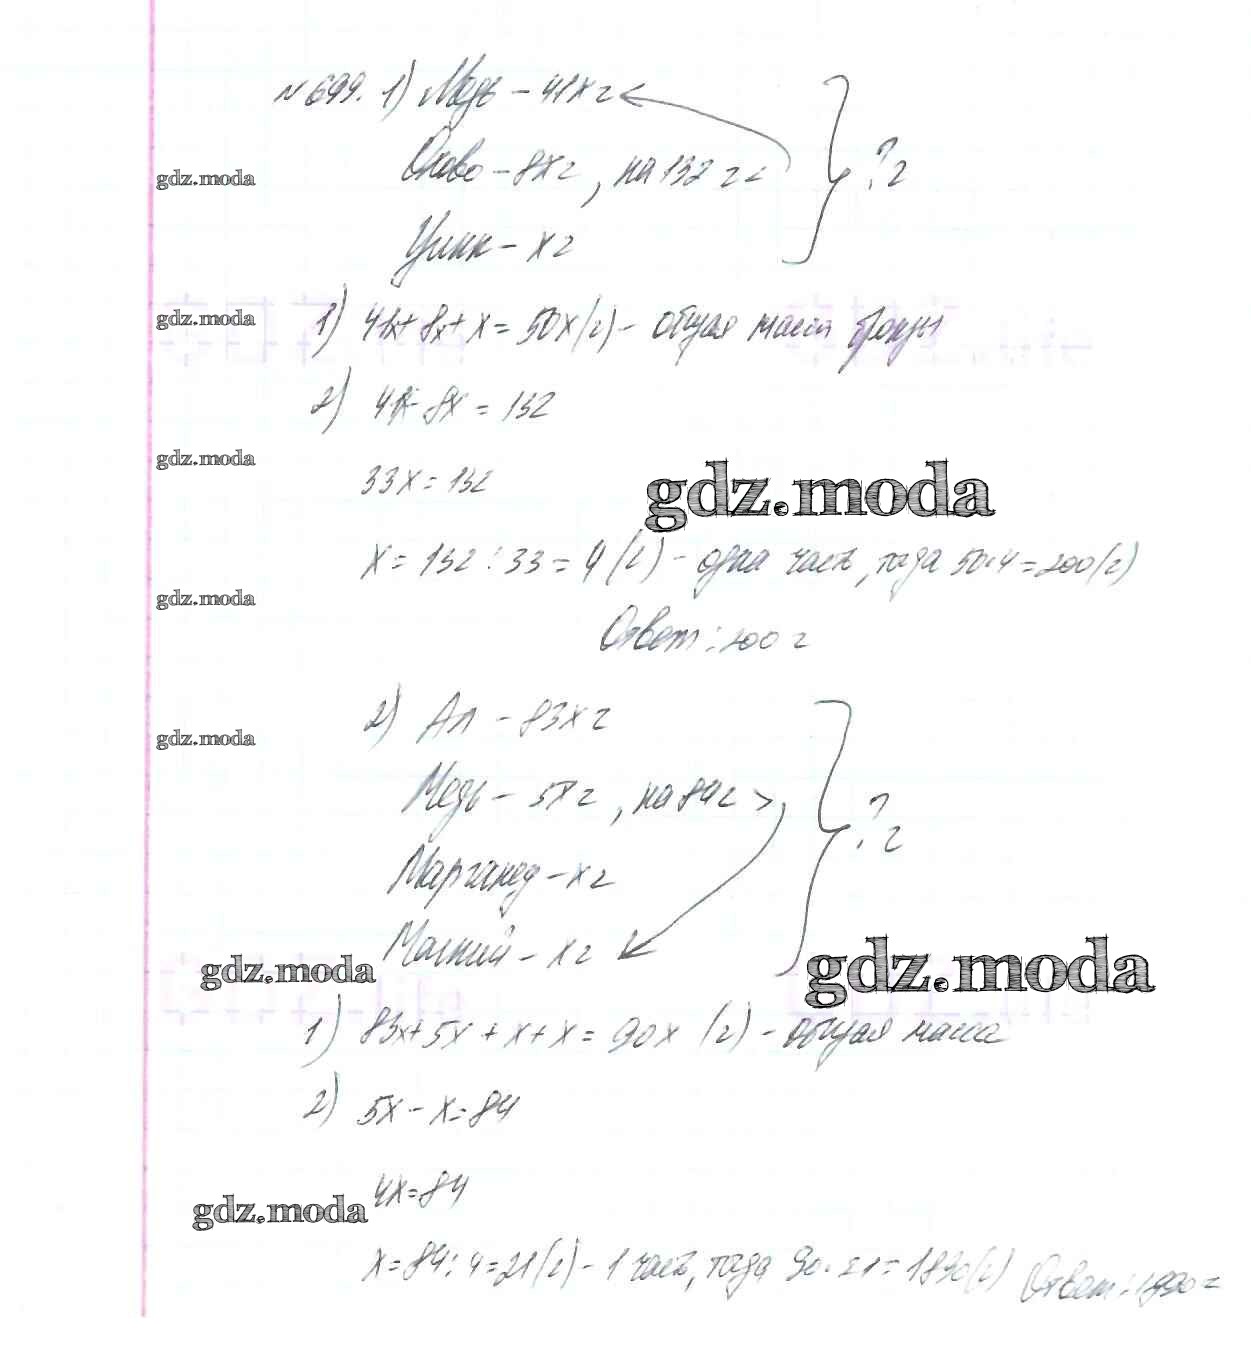 № 699. 1) Медь - 41х г
Олово - 8х г, на 132 г < } ? г
gdz.moda
Цинк - х г
gdz.moda
1) 41х + 8х + х = 50х (г) - общая масса бронзы
2) 41х - 8х = 132
gdz.moda
33х = 132
gdz.moda
х = 132 : 33 = 4 (г) - одна часть, тогда 50·4 = 200 (г)
gdz.moda
Ответ: 200 г
2) Ал - 83х г
gdz.moda
Медь - 5х г, на 84 г > } ? г
Марганец - х г
Магний - х г
gdz.moda
gdz.moda
1) 83х + 5х + х + х = 90х (г) - общая масса
2) 5х - х = 84
4х = 84
gdz.moda
х = 84 : 4 = 21 (г) - 1 часть, тогда 90·21 = 1890 (г) Ответ: 1890 г